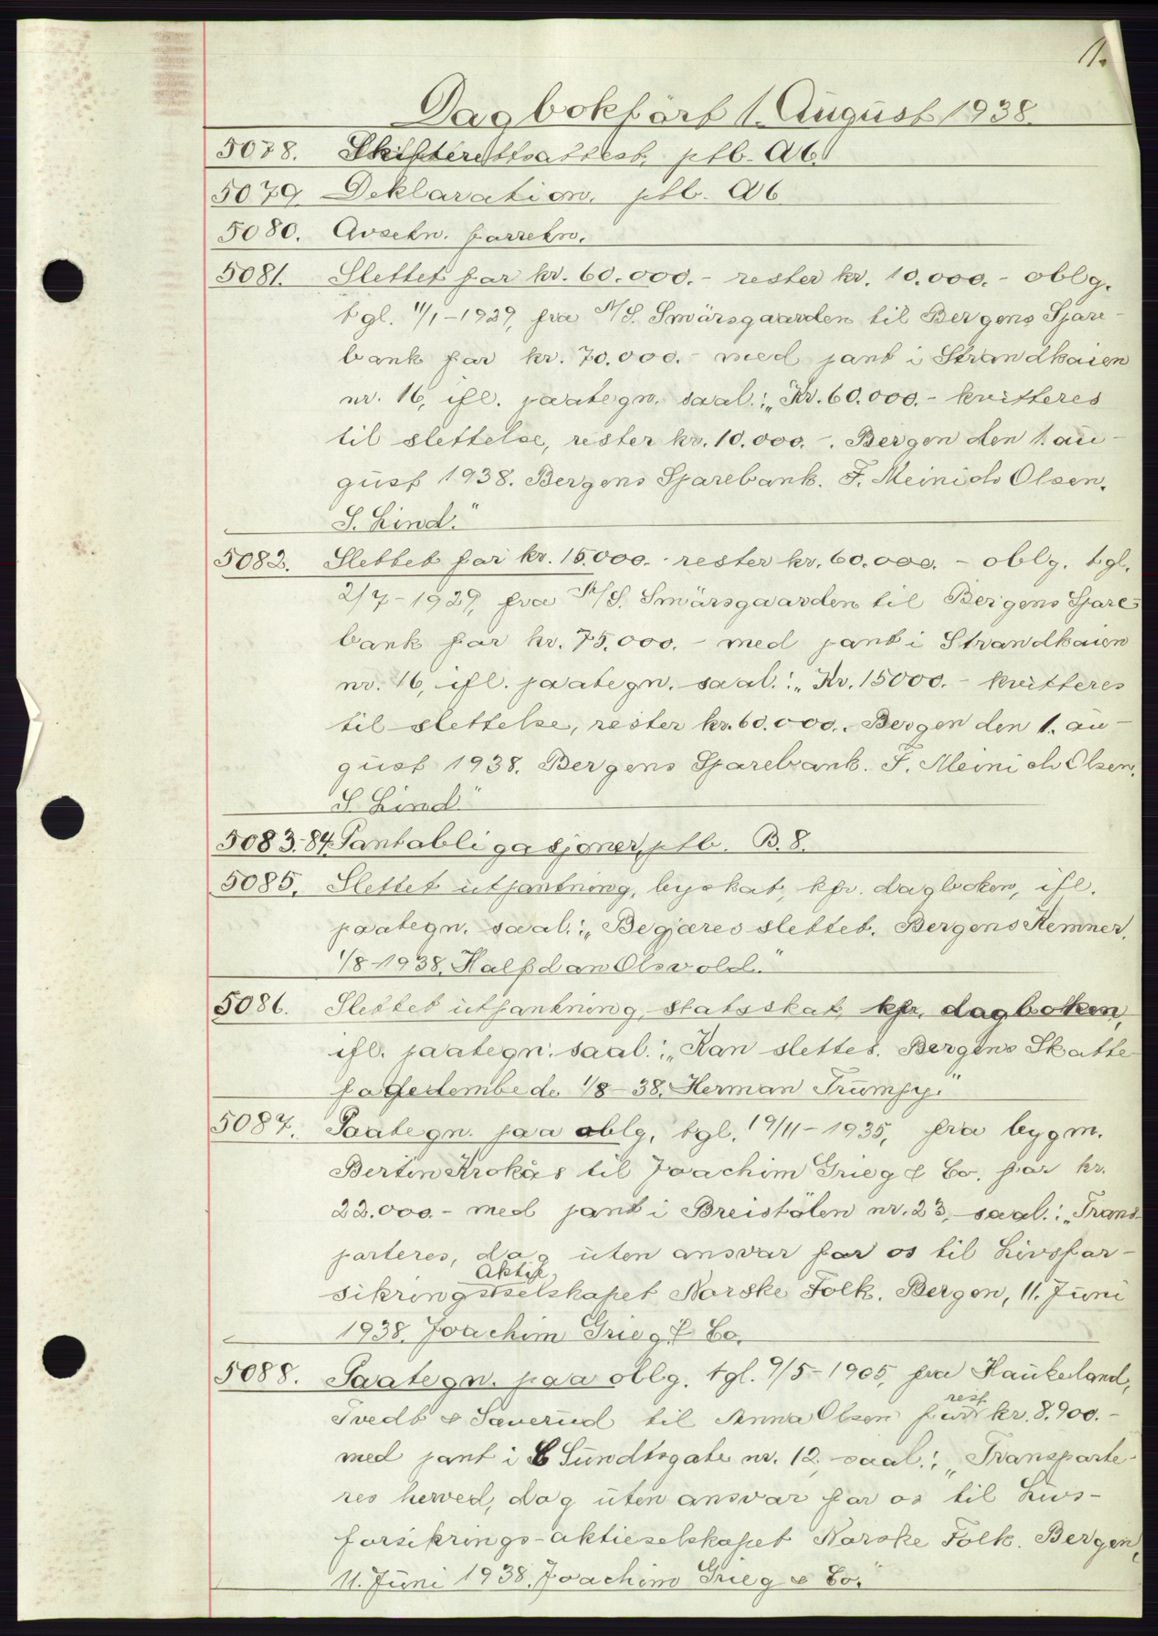 1.
Dagbokført 1. August 1938.
5078. Skifterettsattest, ptb. A6.
5079. Deklaration, ptb. A6
5080. Avsetn. forretn.
5081. Slettet for kr. 60.000.- rester kr. 10.000.- oblg.
tgl. 11/1-1929, fra A/S. Smørsgaarden til Bergens Spare-
bank for kr. 70.000.- med pant i Strandkaien
nr. 16, ifl. paategn. saal.: „Kr. 60.000.- kvitteres
til slettelse, rester kr. 10.000.-. Bergen den 1. au-
gust 1938. Bergens Sparebank. F. Meinich Olsen.
S. Lind."
5082. Slettet for kr. 15.000.- rester kr. 60.000.- oblg. tgl.
2/7-1929, fra A/S. Smørsgaarden til Bergens Spare-
bank for kr. 75.000.- med pant i Strandkaien
nr. 16, ifl. paategn. saal.: „Kr. 15000.- kvitteres
til slettelse, rester kr. 60.000.. Bergen den 1. au-
gust 1938. Bergens Sparebank. F. Meinich Olsen.
S. Lind"
5083-84. Pantobligasjoner, ptb. B.8.
5085. Slettet utpantning, byskat, kfr. dagboken, ifl.
paategn. saal.: „Begjæres slettet. Bergens Kemner,
1/8-1938. Halfdan Olsvold."
5086. Slettet utpantning, statsskat, kfr. dagboken,
ifl. paategn. saal.: „Kan slettes. Bergens Skatte-
fogedembede 1/8-38. Herman Trumpy."
5087. Paategn. paa oblg. tgl. 19/11-1935, fra bygm.
Bertin Krokås til Joachim Grieg & Co. for kr.
22.000.- med pant i Breistølen nr. 23, saal.: „Trans-
porteres, dog uten ansvar for os til Livsfor-
sikrings Aktieselskapet Norske Folk. Bergen, 11. Juni
1938. Joachim Grieg & Co.
5088. Paategn. paa oblg. tgl. 9/5-1905, fra Haukeland,
Tvedt & Sæverud til Anna Olsen for rest kr. 8.900.-
med pant i C Sundtsgate nr. 12, saal.: „Transporte-
res herved, dog uten ansvar for os til Livs-
forsikrings-aktieselskapet Norske Folk. Bergen,
11. Juni 1938. Joachim Grieg & Co."